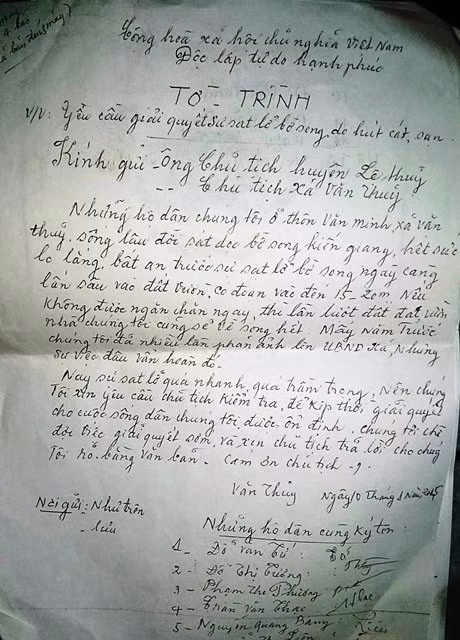 Cộng hoà xã hội chủ nghĩa Việt Nam
Độc lập tự do hạnh phúc
TỜ - TRÌNH
V/v: Yêu cầu giải quyết sự sạt lở bờ sông, do hút cát, sạn.
Kính gửi - Ông Chủ tịch huyện Lệ Thuỷ
- - Chủ tịch xã Văn Thuỷ
Những hộ dân chúng tôi ở thôn Văn minh, xã Văn
thuỷ, sống lâu đời sát dọc bờ sông kiến giang, hết sức
lo lắng, bất an trước sự sạt lở bờ sông ngày càng
lấn sâu vào đất vườn, có đoạn vào đến 15-20m. Nếu
không được ngăn chặn ngay, thì lần lượt đất đai vườn
nhà chúng tôi cũng sẽ về sông hết. Mấy năm trước
chúng tôi đã nhiều lần phản ảnh lên UBND xã, Nhưng
sự việc đâu vẫn hoàn đó.
Nay sự sạt lở quá nhanh, quá trầm trọng, Nên chúng
Tôi xin yêu cầu chủ tịch kiểm tra, để kịp thời giải quyết
cho cuộc sống dân chúng tôi, được ổn định. Chúng tôi chờ
đợi việc giải quyết sớm, và xin chủ tịch trả lời cho chúng
Tôi rõ bằng văn bản. Cảm ơn chủ tịch
Văn Thuỷ Ngày 10 Tháng
Nơi gửi: Như trên
- lưu
Những hộ dân cùng ký tên:
1 - Đỗ Văn Tứ
2 - Đỗ Thị Tường
3 - Phạm Thị Phương
4 - Trần Văn Thạc
5 - Nguyễn Quang Bằng